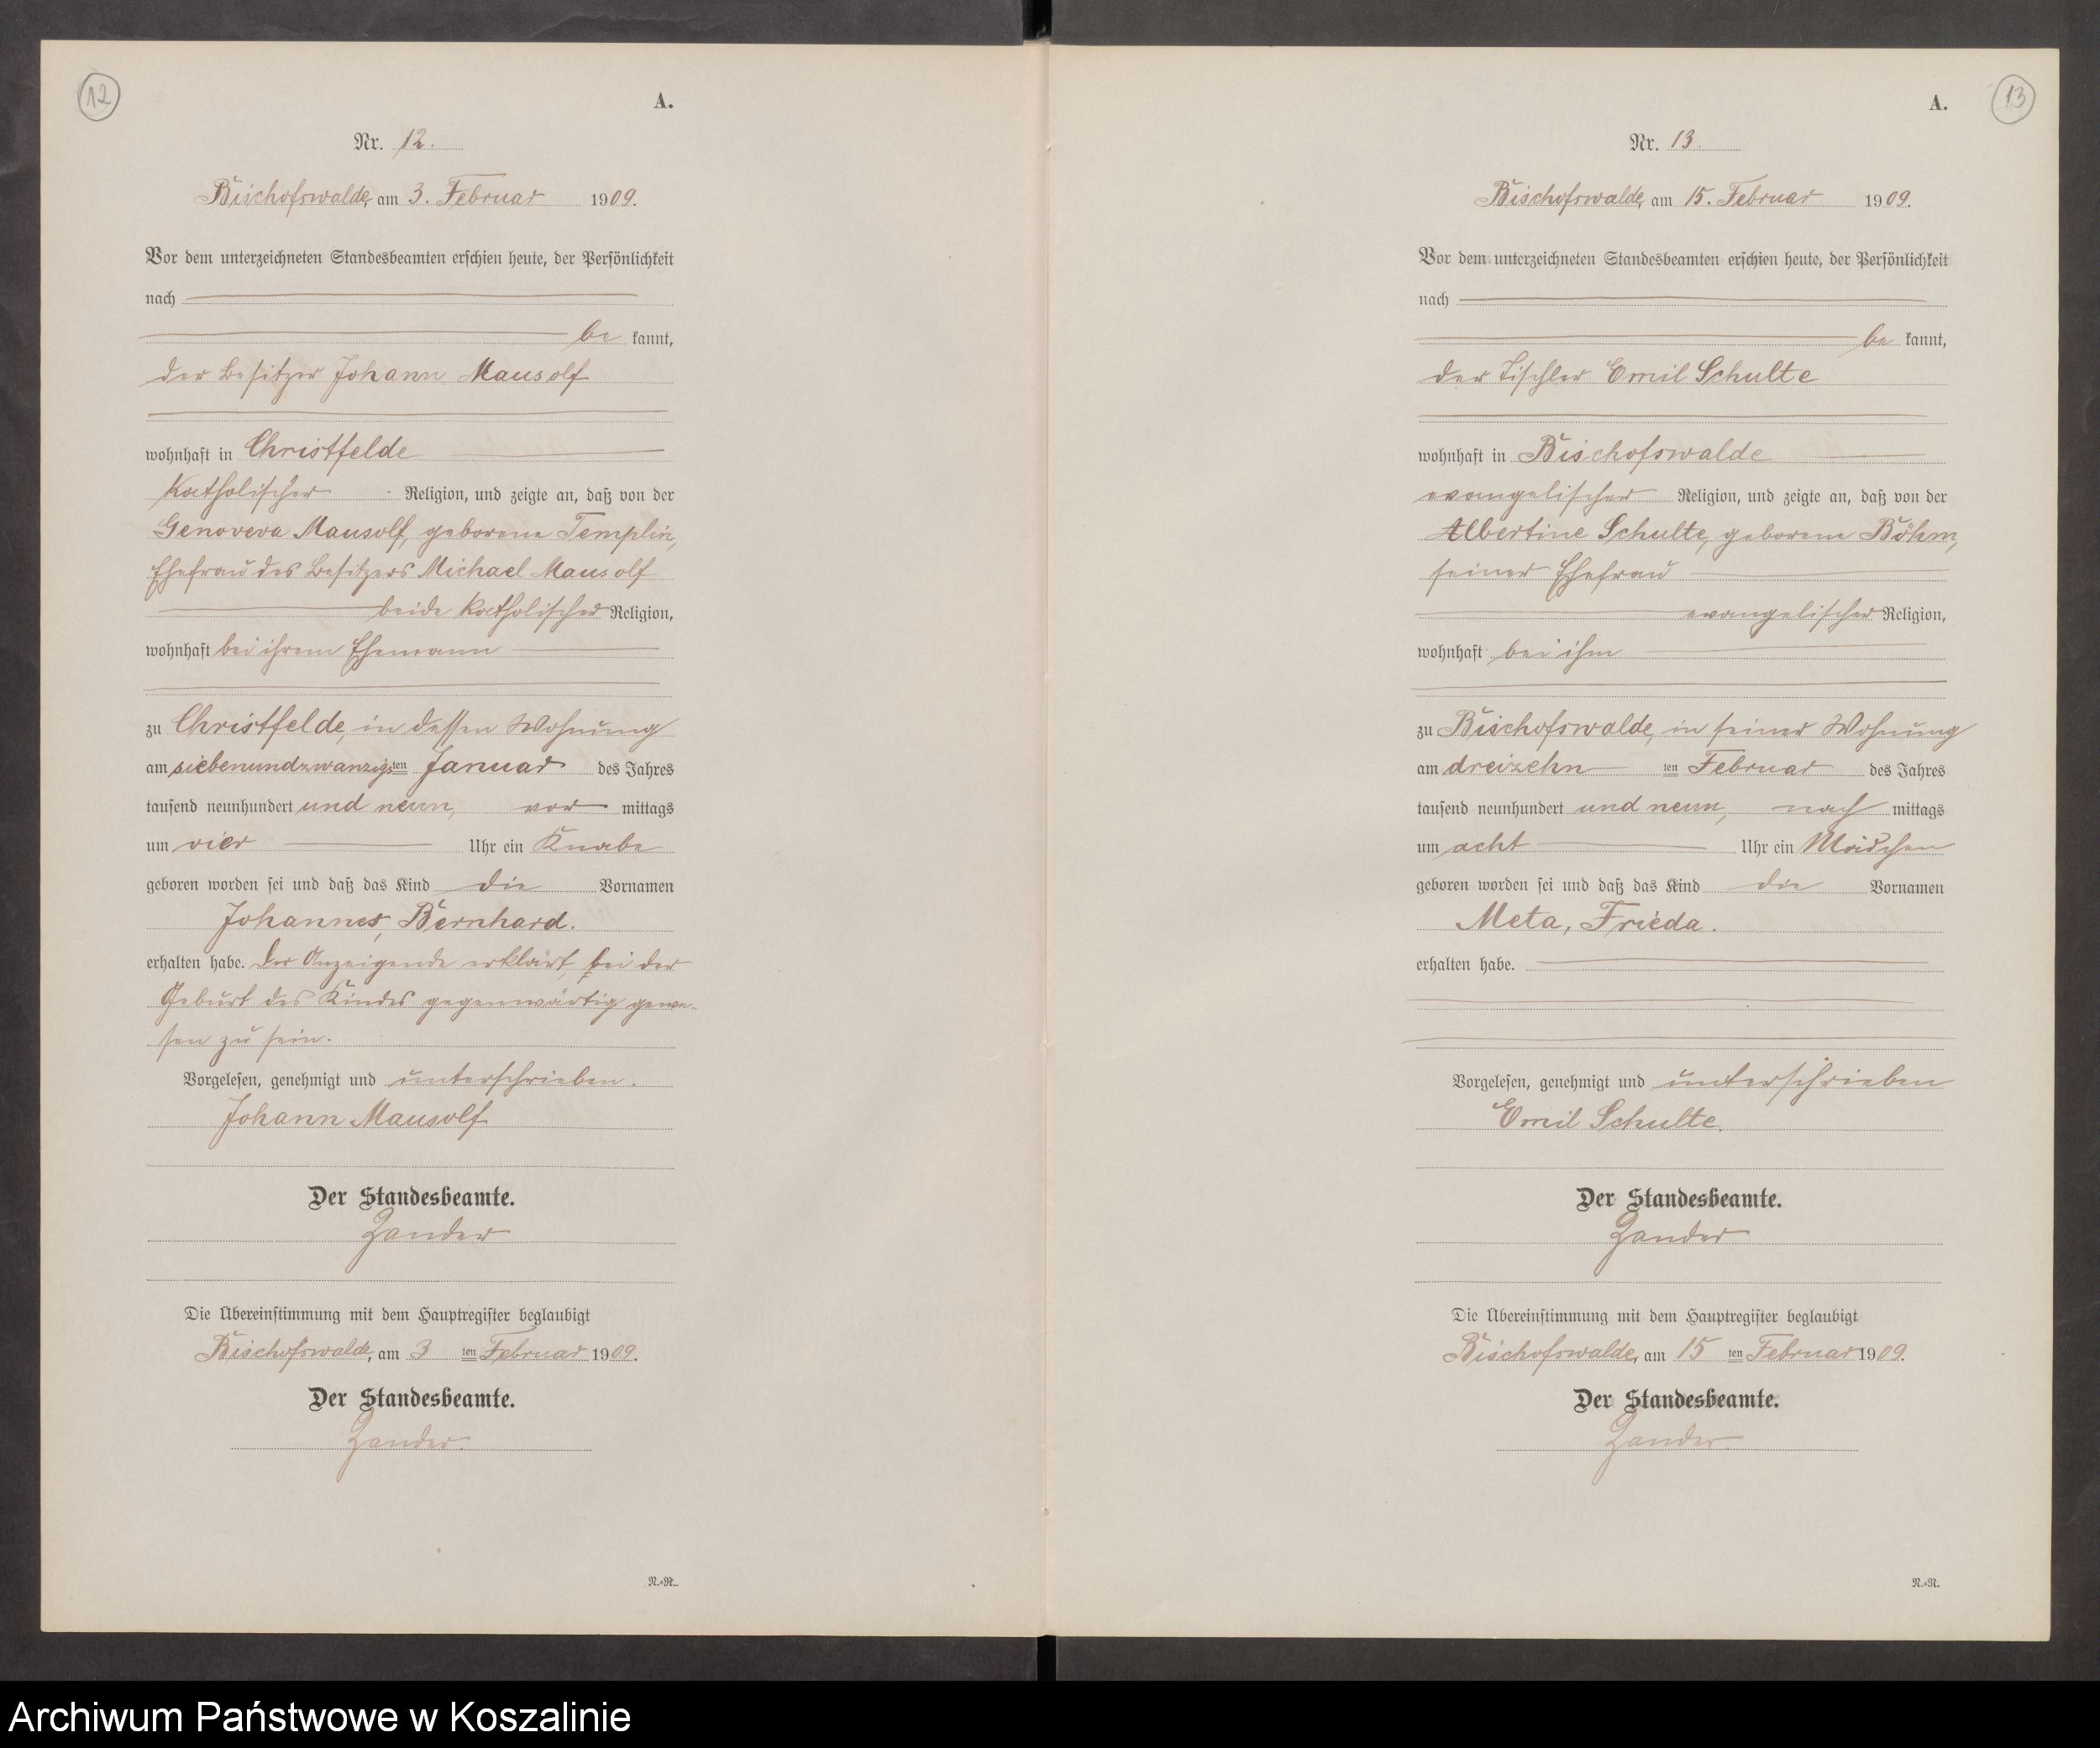 12
A.
Nr. 12.
Bischofswalde, am 3. Februar 1909.
Vor dem unterzeichneten Standesbeamten erschien heute, der Persönlichkeit
nach
be kannt,
der Besitzer Johann Mausolf
wohnhaft in Christfelde
katholischer Religion, und zeigte an, daß von der
Genoveva Mausolf, geborene Templin,
Ehefrau des Besitzers Michael Mausolf
beide katholischer Religion,
wohnhaft bei ihrem Ehemann
zu Christfelde, in dessen Wohnung
am siebenundzwanzigsten Januar des Jahres
tausend neunhundert und neun, vor mittags
um vier Uhr ein Knabe
geboren worden sei und daß das Kind die Vornamen
Johannes, Bernhard.
erhalten habe. Der Anzeigende erklärt, bei der
Geburt des Kindes gegenwärtig gewe-
sen zu sein.
Vorgelesen, genehmigt und unterschrieben.
Johann Mausolf
Der Standesbeamte.
Zander
Die Übereinstimmung mit dem Hauptregister beglaubigt
Bischofswalde, am 3 ten Februar 1909.
Der Standesbeamte.
Zander.
N.-R.
13
A.
Nr. 13.
Bischofswalde, am 15. Februar 1909.
Vor dem unterzeichneten Standesbeamten erschien heute, der Persönlichkeit
nach
be kannt,
der Tischler Emil Schulte
wohnhaft in Bischofswalde
evangelischer Religion, und zeigte an, daß von der
Albertine Schulte, geborene Böhm,
seiner Ehefrau
evangelischer Religion,
wohnhaft bei ihm
zu Bischofswalde, in seiner Wohnung
am dreizehn ten Februar des Jahres
tausend neunhundert und neun, nach mittags
um acht Uhr ein Mädchen
geboren worden sei und daß das Kind die Vornamen
Meta, Frieda.
erhalten habe.
Vorgelesen, genehmigt und unterschrieben
Emil Schulte.
Der Standesbeamte.
Zander
Die Übereinstimmung mit dem Hauptregister beglaubigt
Bischofswalde, am 15 ten Februar 1909.
Der Standesbeamte.
Zander.
N.-R.
Archiwum Państwowe w Koszalinie